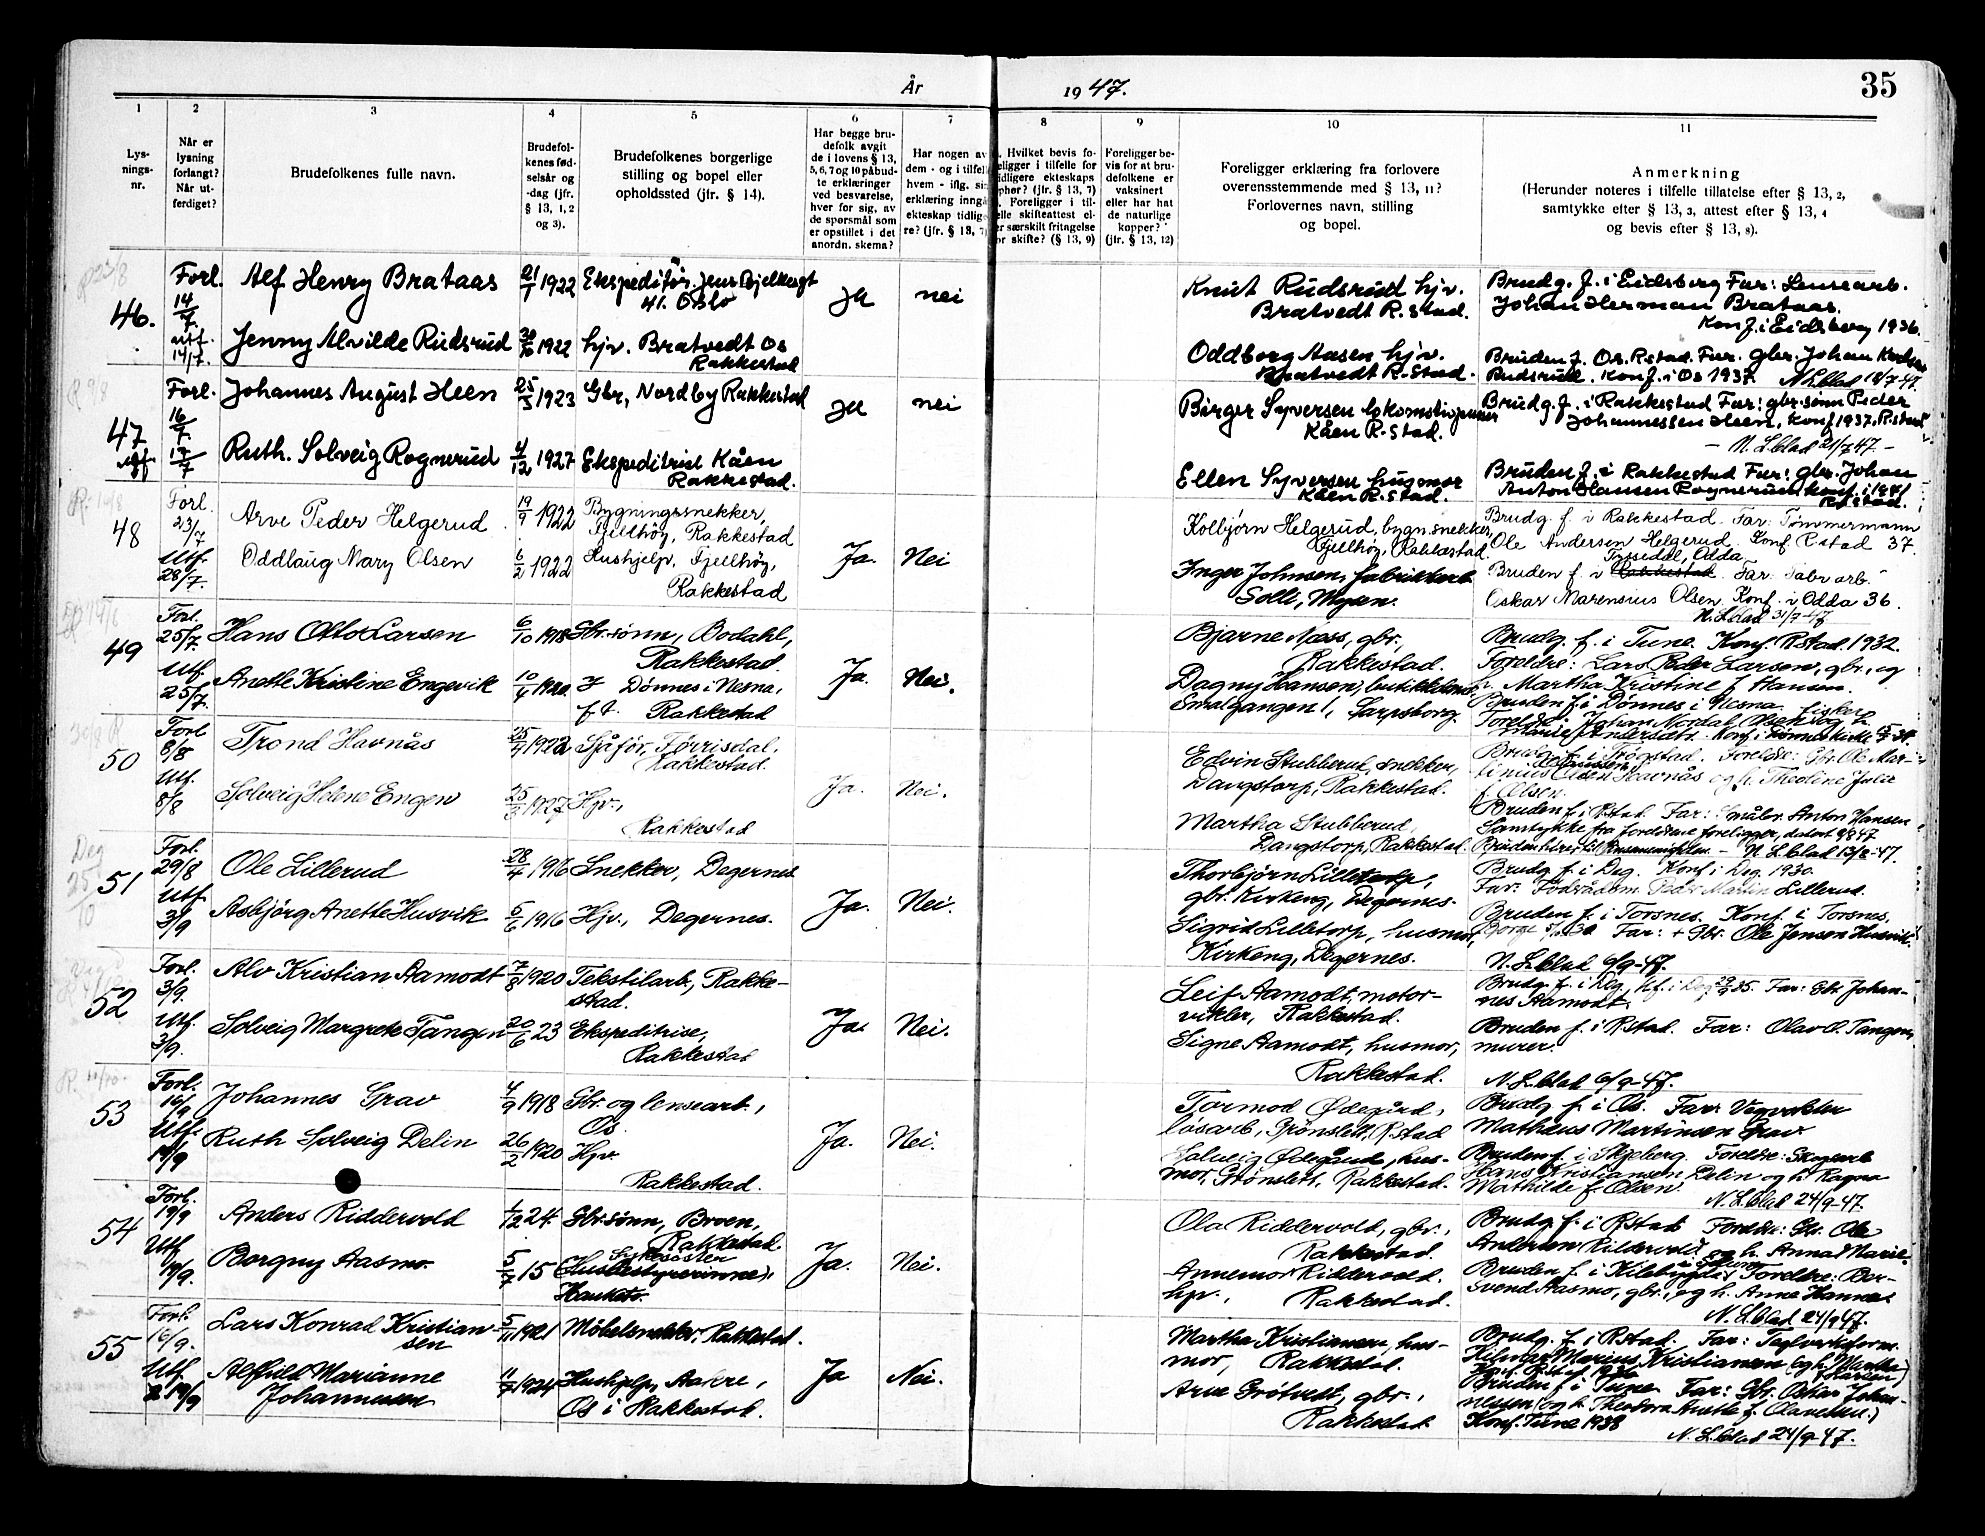 År 1947.
35
1 2 3 4 5 6 7 8 9 10 11
Lysnings-nr.
Når er lysning forlangt? Når utferdiget?
Brudefolkenes fulle navn.
Brudefolkenes fødselsår og -dag (jfr. § 13, 1, 2 og 3).
Brudefolkenes borgerlige stilling og bopel eller opholdssted (jfr. § 14).
Har begge brudefolk avgit de i lovens § 13, 5, 6, 7 og 10 påbudte erklæringer ved besvarelse, hver for sig, av de spørsmål som er opstillet i det anordn. skema?
Foreligger bevis for at brudefolkene er vaksinert eller har hat de naturlige kopper? (jfr. § 13, 12)
Foreligger erklæring fra forlovere
overensstemmende med § 13, 11?
Forlovernes navn, stilling
og bopel.
Anmerkning
(Herunder noteres i tilfelle tillatelse efter § 13, 2,
samtykke efter § 13, 3, attest efter § 13, 4
og bevis efter § 13, 8).
46. Forl. 14/7 Alf Henry Brataas 21/1 1922 Ekspeditør
41. Oslo
Ja nei
utf. 14/7. Jenny Alvilde Rudsrud 1922 hjv. Bratvedt Os
Rakkestad
Knut Rudsrud hjv.
Bratvedt R.stad.
Oddborg Aasen hjv.
Bratvedt R.stad.
Brudg. f. i Eidsberg Far: Lensearb.
Johan Herman Brataas.
Konf. i Eidsberg 1936.
Bruden f. Os. R.stad. Far. gbr. Johan
Rudsrud. Konf. i Os 1937. N. L.blad 18/7-47.
47 Forl. 16/7 Johannes August Heen 25/3 1923 Gbr, Nordby Rakkestad
Ja nei
utf 17/7 Ruth. Solveig Rognerud 4/12 1927 Ekspeditrise Kåen
Rakkestad.
Birger Syversen
Kåen R.stad.
Ellen Syversen husmor
Kåen R.stad.
Brudg. f. i Rakkestad Far: gbr.sønn Peder
Johannessen Heen, Konf 1937. R.stad
- N. L.blad 21/7 47 -
Bruden f. i Rakkestad Far: gbr. Johan
Anton Hansen Rognerud konf. i
R.stad.
48 Forl. 23/7 Arve Peder Helgerud 19/9 1922 Bygningssnekker,
Fjellhøy, Rakkestad
Utf. 28/7. Oddlaug Mary Olsen 6/2 1922 Hushjelp, Fjellhøy,
Rakkestad
Ja. Nei
Kolbjørn Helgerud, bygn.snekker,
Fjellhøy, Rakkestad.
Inger Johnsen, fabrikkarb.
Solli, Mysen.
Brudg. f. i Rakkestad. Far: Tømmermann
Ole Andersen Helgerud. Konf. R.stad 37.
Tyssedal, Odda
Bruden f. i Rakkestad. Far: Fabr.arb.
Oskar Marensius Olsen. Konf. i Odda 36.
N. L.blad 31/7-47
49 Forl. 25/7. Hans Otto Larsen 6/10 1918 Gbr.sønn, Bodahl,
Rakkestad.
Utf. 25/7. Anette Kristine Engevik 10/4 1920. Dønnes i Nesna,
f.t. Rakkestad
Ja. Nei.
Bjarne Næss, gbr.,
Rakkestad.
Dagny Hansen,
Smalgangen 1, Sarpsborg.
Brudg. f. i Tune. Konf. R.stad. 1932.
Foreldre: Lars Peder Larsen, gbr., og
h. Martha Kristine f. Hansen.
Bruden f. i Dønnes i Nesna.
fisker
50 Forl 8/8 Trond Havnås 25/4 1922 Sjåfør, Tørrisdal,
Rakkestad.
Utf. 8/8 Solveig Helene Engen 25/3 1927 Hjv.,
Rakkestad
Ja. Nei.
Edvin Stubberud, snekker,
Daugstorp, Rakkestad.
Martha Stubberud,
Daugstorp, Rakkestad.
Brudg. f. i Trøgstad. Foreldre: Gbr. Ole Mar-
tinus Havnås og h. Theoline Julie
f. Olsen.
Bruden f. i R.stad Far: Småbr. Anton Hansen
Samtykke fra foreldrene foreligger, datert 9/8 47
N. L.blad 13/8-47.
51 Forl. 29/8 Ole Lillerud 28/4 1916 Snekker, Degernes
Utf 3/9 Asbjørg Anette Husvik 5/6 1916 Hjv., Degernes.
Ja. Nei.
Thorbjørn Lilletorp,
gbr. Kirkeng, Degernes.
Sigrid Lilletorp, husmor,
Kirkeng, Degernes.
Brudg. f. i Deg. Konf. i Deg. 1930.
Far: Fødsrådsm. Peder Martin Lillerud.
Bruden f. i Torsnes. Konf. i Torsnes,
Borge 30. Far: + Gbr. Ole Jensen Husvik.
N. L.blad 6/9-47.
52 Forl. 3/9. Alv Kristian Aamodt 7/8 1920 Tekstilarb., Rakke-
stad.
Utf. 3/9. Solveig Margrete Tangen 20/6 23 Ekspeditrise,
Rakkestad
Ja. Nei.
Leif Aamodt, motor-
vikler, Rakkestad.
Signe Aamodt, husmor,
Rakkestad.
Brudg. f. i Deg, kf. i Deg 35. Far: Gbr. Johan-
nes Aamodt.
Bruden f. i R.stad. Far: Olav O. Tangen,
murer.
N. L.blad 6/9-47.
53 Forl. 16/9 Johannes Grav 4/9 1918 Gbr. og lensearb.,
Os.
Utf. 17/9 Ruth Solveig Delin 26/2 1920 Hjv.
Rakkestad.
Ja. Nei.
Tormod Ødegård,
løsarb., Grønslett, R.stad
Solveig Ødegård, hus-
mor, Grønslett, Rakkestad.
Brudg f. i Os. Far: Vegvokter
Mathæus Martinsen Grav.
Bruden f. i Skjeberg. Foreldre: Skogsarb
Hans Kristiansen Delin og h. Ragna
Mathilde f. Olsen.
N. L.blad 24/9-47.
54 Forl. 19/9 Anders Riddervold 1/12 24. Gbr.sønn, Broen,
Rakkestad.
Utf 19/9. Borgny Aasmo. 5/7 15 Sykesøster
(Husbestyrerinne),
Ja. Nei.
Ola Riddervold, gbr.,
Rakkestad.
Annemor Riddervold.
hjv., Rakkestad.
Brudg. f. i R.stad Foreldre: Gbr. Ole
Andersen Riddervold og h. Anna Marie.
Bruden f. i Kilebygda Foreldre: Ber-
Svend Aasmo, gbr., og h. Anne Hannes
N. L.blad 24/9 47.
55 Forl. 16/9. Lars Konrad Kristian-
sen 5/11 1921 Møbelsnekker, Rakkestad.
Utf 19/9 Alfhild Marianne
Johannessen 1924 Hushjelp, Aakre,
Os i Rakkestad.
Ja Nei.
Martha Kristiansen, hus-
mor, Rakkestad.
Arne Grøtvedt, gbr.,
Rakkestad.
Brudg. f. i R.stad. Far: Teglverksform.
Hilmar Marius Kristiansen (og h. Martha
Bruden f. i Tune Far: Gbr. Oskar Johan-
nessen (og h. Theodora Anette f. Olavesen.)
Konf. Tune 1938
N. L.blad 24/9-47.